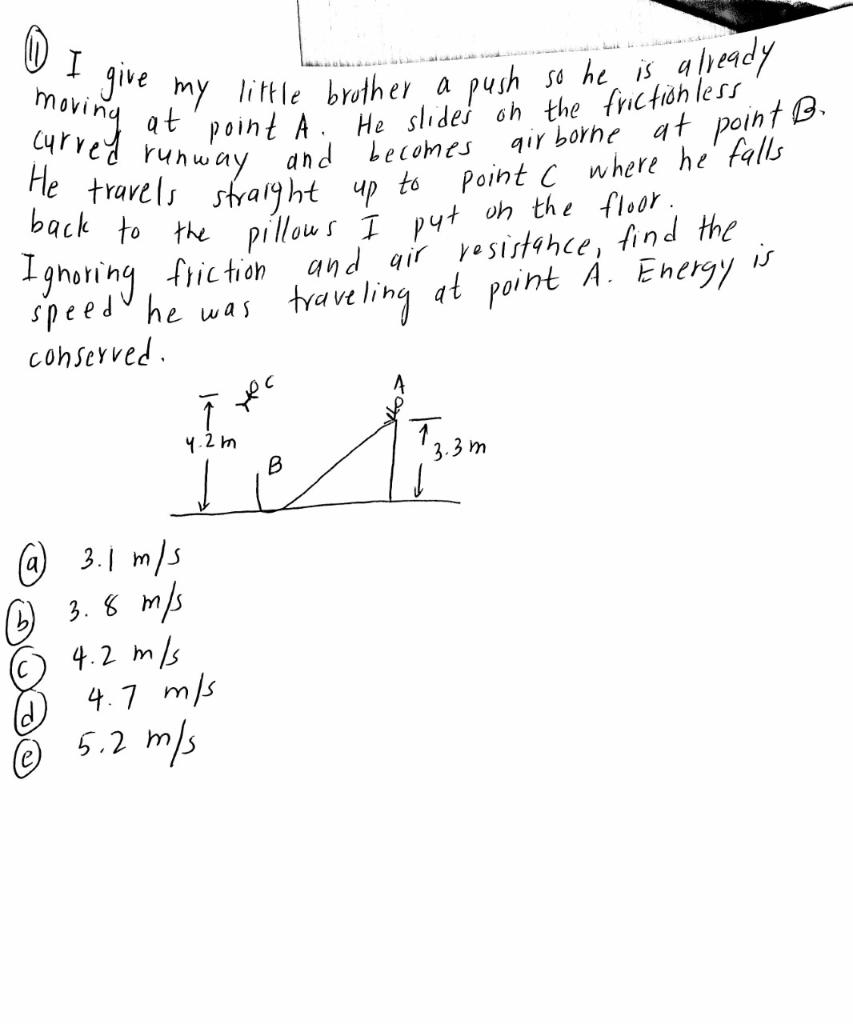 11 I give my little brother a push so he is already
moving at point A. He slides on the frictionless
curved runway and becomes airborne at point B.
He travels straight up to point C where he falls
back to the pillows I put on the floor.
Ignoring friction and air resistance, find the
speed he was traveling at point A. Energy is
conserved.
C
A
4.2 m
B
3.3 m
a 3.1 m/s
b 3.8 m/s
c 4.2 m/s
d 4.7 m/s
e 5.2 m/s